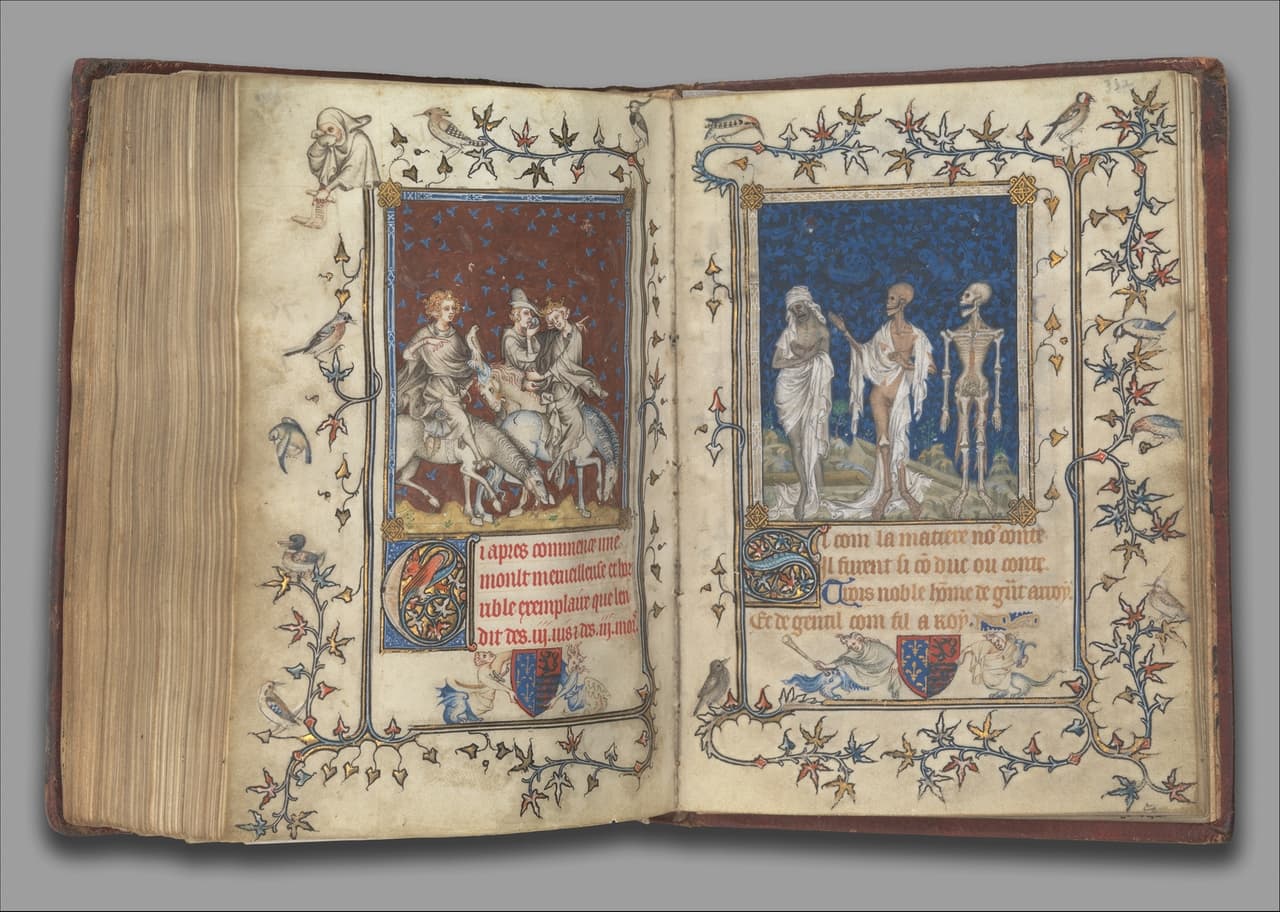 Ci apres commence une
moult merueilleuse et hor
rible exemplaire que len
dit des .iij. uis & des .iij. mors
Si com la matiere no9 conte
Il furent si cō duc ou conte.
Trois noble hōme de grāt arroy.
Et de gentil com fil a roy.